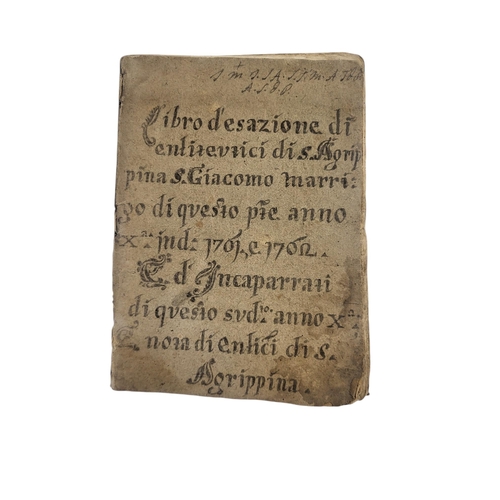 A.S.G.P.
Libro d'esazione di
enfitevtici di S. Agrip
pina S. Giacomo marri:
yo di qvesto pñte anno
Xª ind. 1761. e 1762.
E d' Incaparrati
di qvesto svdº anno Xª
E nota di enfici di S.
Agrippina.